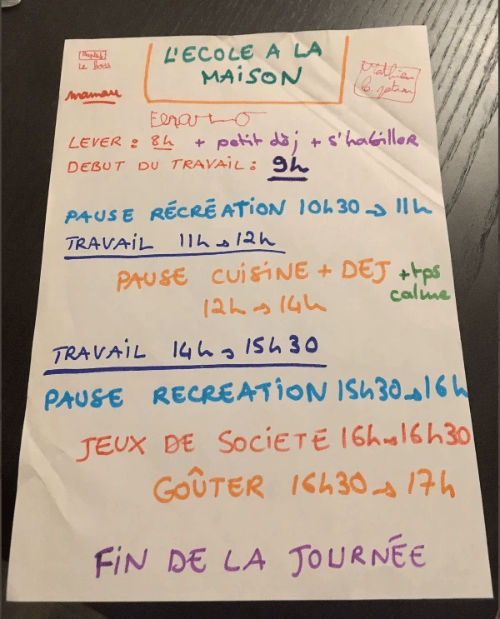 L'ECOLE A LA
MAISON
le boss
maman
LEVER : 8h + petit dèj + s'habiller
DEBUT DU TRAVAIL : 9h
PAUSE RÉCRÉATION 10h30 → 11h
TRAVAIL 11h → 12h
PAUSE CUISINE + DEJ + tps
calme
12h → 14h
TRAVAIL 14h → 15h30
PAUSE RECREATION 15h30 → 16h
JEUX DE SOCIETE 16h → 16h30
GOÛTER 16h30 → 17h
FIN DE LA JOURNÉE